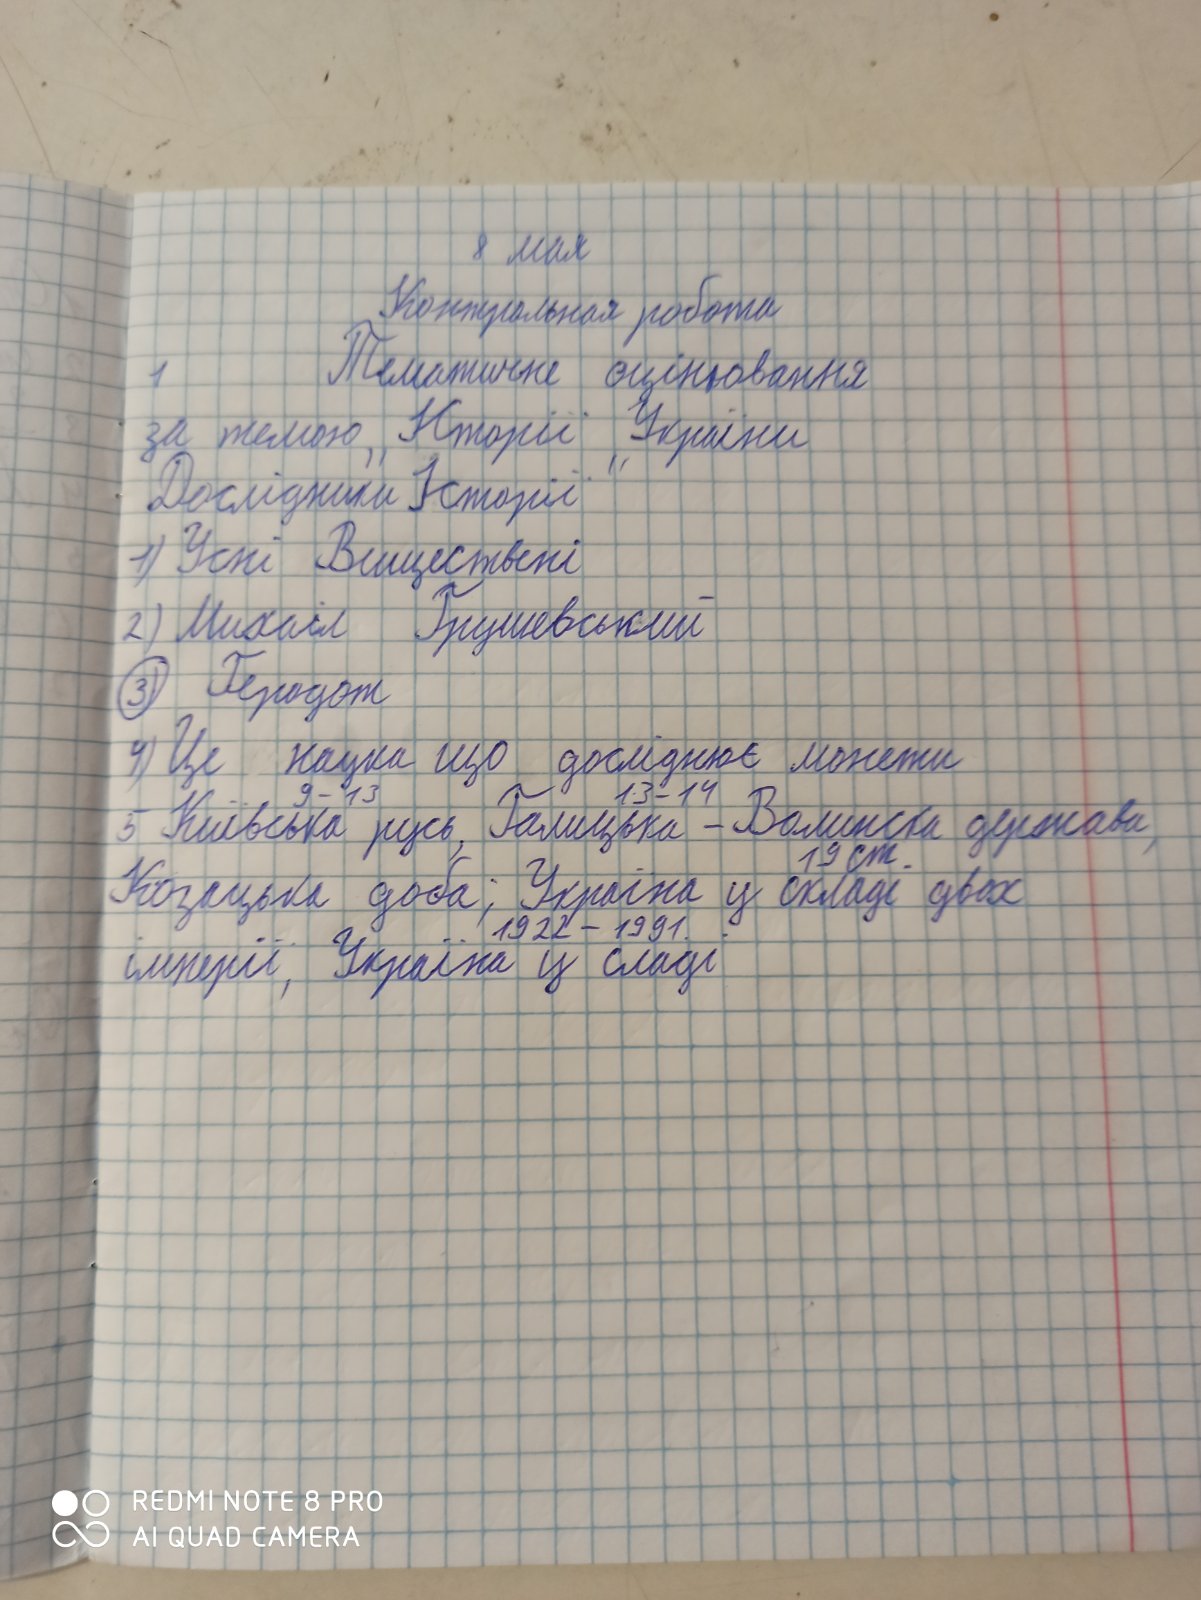 8 мая
Контрольная робота
1 Тематичне оцінювання
за темою „Історії Україіни
Дослідники Історіі"
1) Усні Виществені
2) Михаіл Грушевський
3) Геродот
4) Це наука що досліднює монети
9-13 13-14
5 Киівська русь, Галицька - Волинска держава,
19 ст.
Козацька доба; Україна ц складі двох
1922 - 1991.
імперіі, Україіна ц сладі
REDMI NOTE 8 PRO
AI QUAD CAMERA